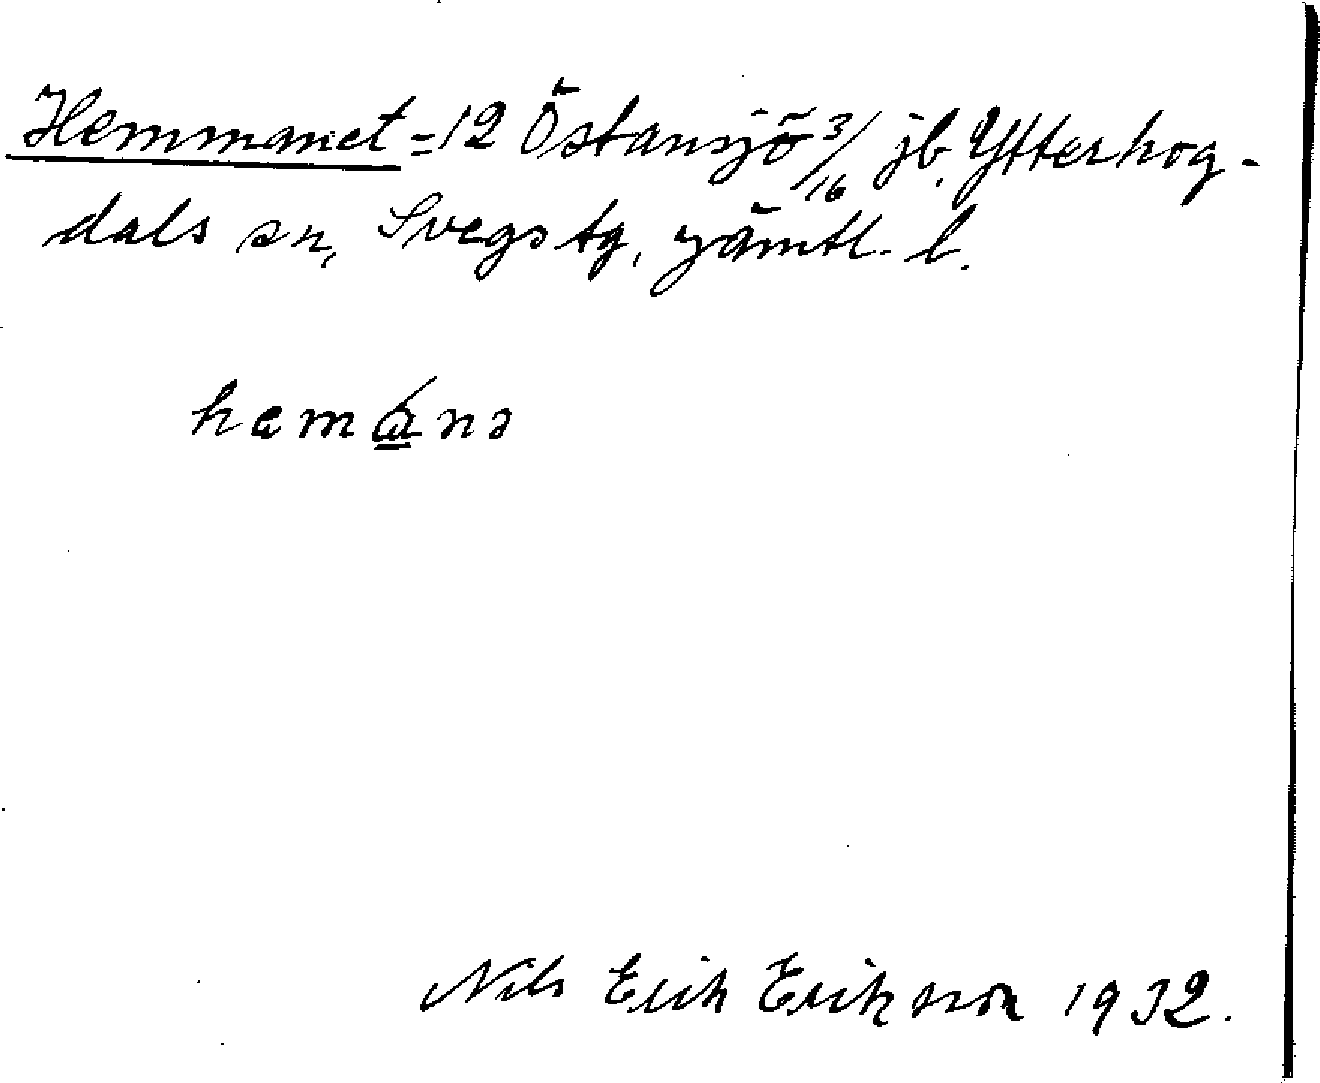 Hemmanet = 12 Östansjö 3/16 jb. Ytterhog-
dals sn, Svegs tg, Jämtl. l.
hemána
Nils Erik Erikson 1932.